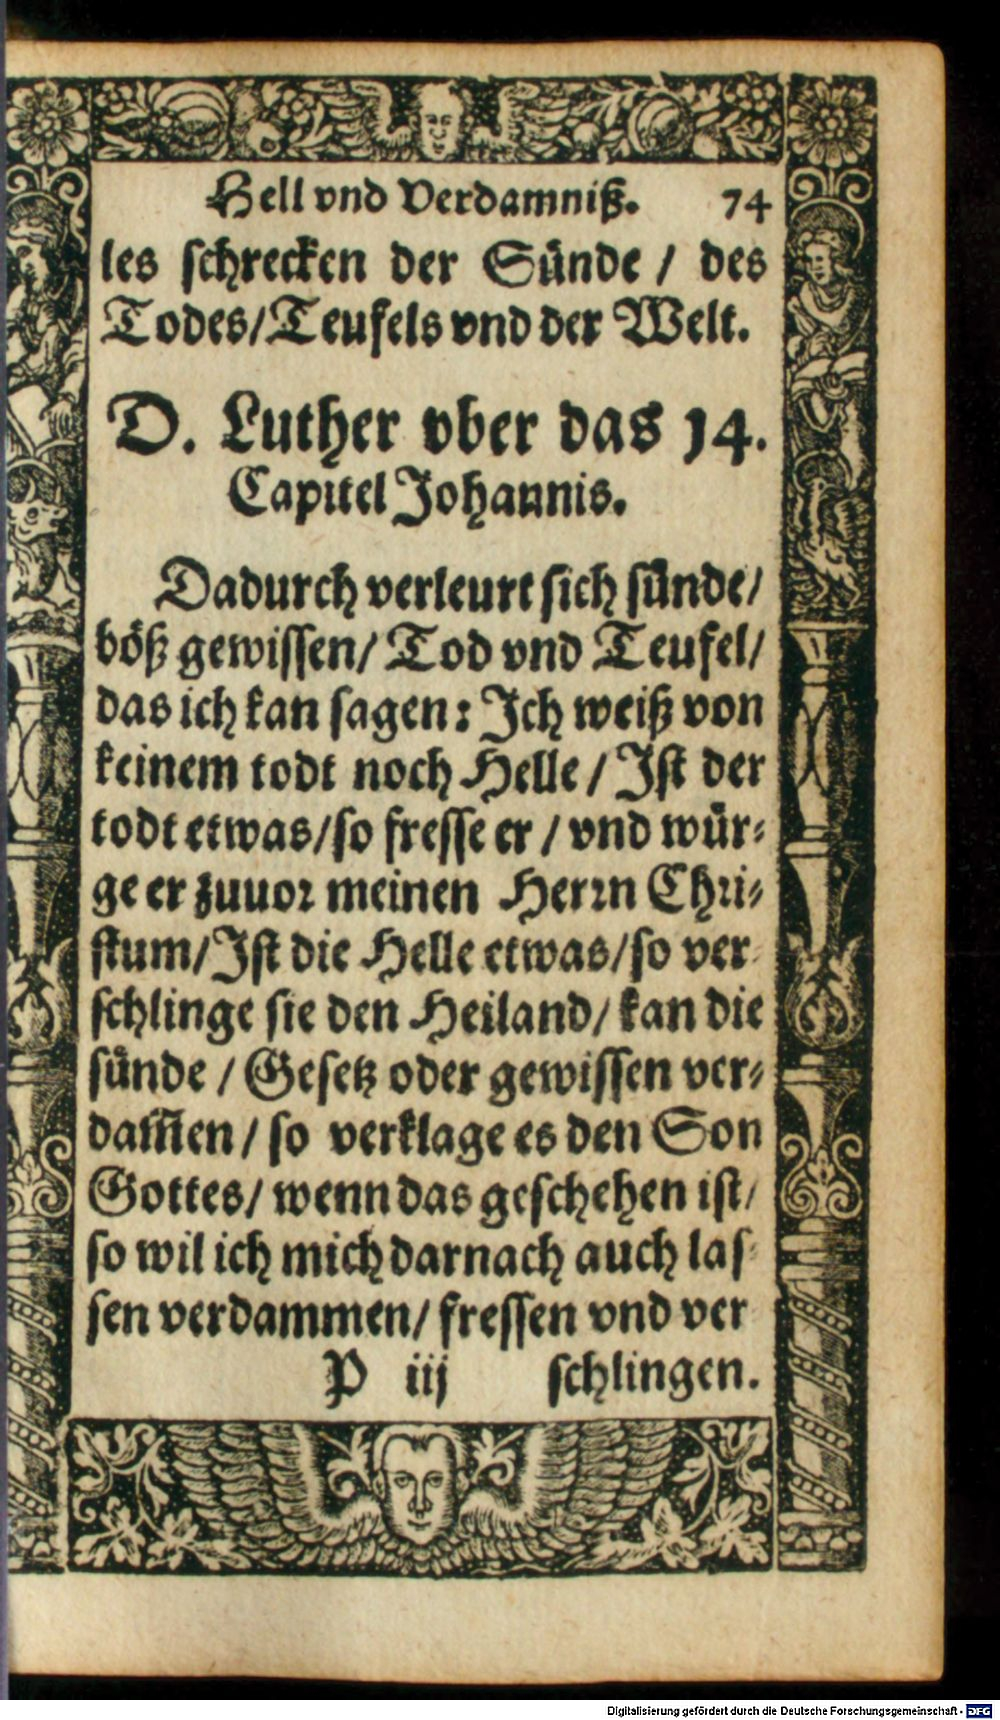 Hell vnd Verdamniß. 74
les schrecken der Sünde / des
Todes/Teufels vnd der Welt.
D. Luther vber das 14.
Capitel Johannis.
Dadurch verleurt sich sünde/
böß gewissen/ Tod vnd Teufel/
das ich kan sagen: Ich weiß von
keinem todt noch Helle / Ist der
todt etwas/so fresse er / vnd wür-
ge er zuuor meinen Herrn Chri-
stum/Ist die Helle etwas/so ver-
schlinge sie den Heiland/ kan die
sünde / Gesetz oder gewissen ver-
dam̄en / so verklage es den Son
Gottes/ wenn das geschehen ist/
so wil ich mich darnach auch las-
sen verdammen/ fressen vnd ver
P iij schlingen.
Digitalisierung gefördert durch die Deutsche Forschungsgemeinschaft - DFG